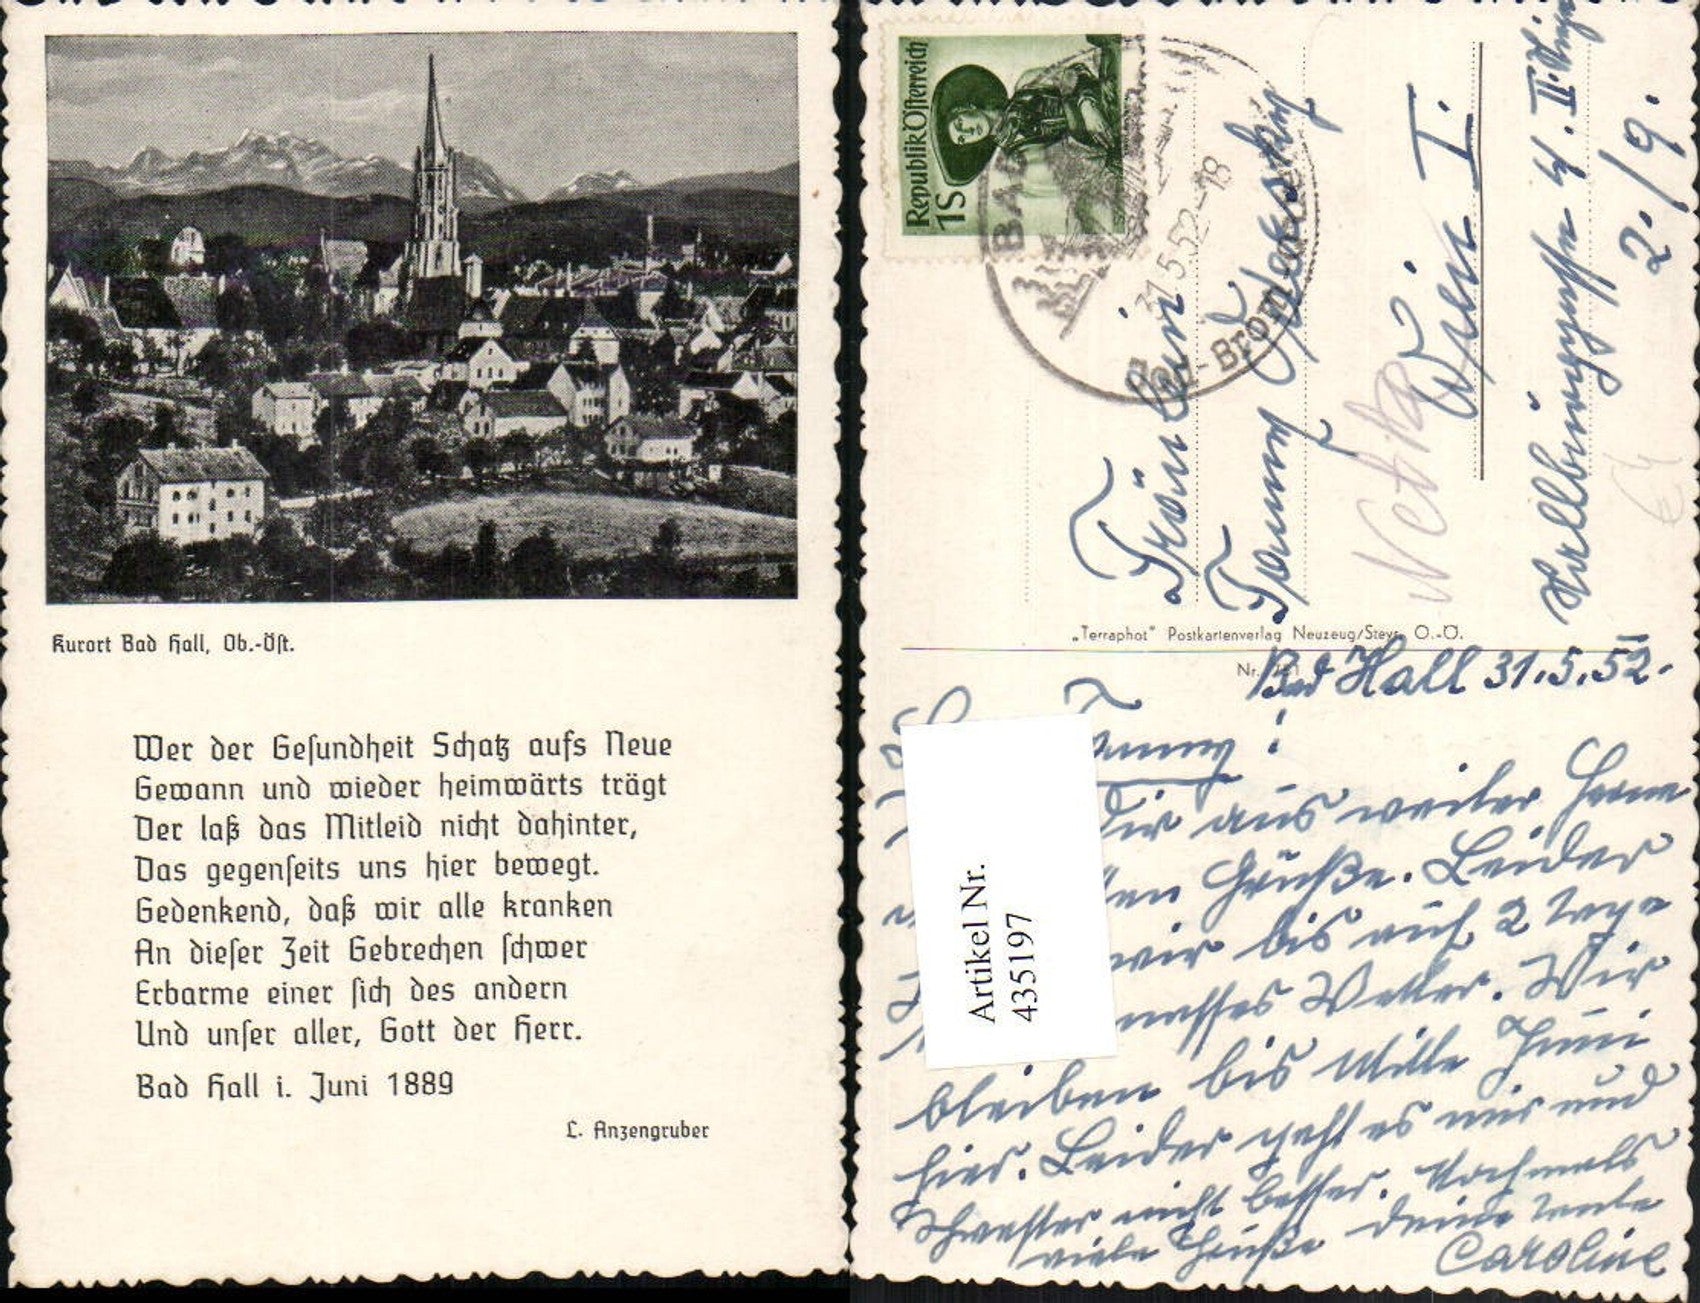 Kurort Bad Hall, Ob.-Öst.
Wer der Gesundheit Schatz aufs Neue
Gewann und wieder heimwärts trägt
Der laß das Mitleid nicht dahinter,
Das gegenseits uns hier bewegt.
Gedenkend, daß wir alle kranken
An dieser Zeit Gebrechen schwer
Erbarme einer sich des andern
Und unser aller, Gott der Herr.
Bad Hall i. Juni 1889
L. Anzengruber
Republik Österreich
1S
BAD
31.5.52-18
Brom
Fräulein
Fanny
Netka
Wien I.
2./9.
„Terraphot" Postkartenverlag Neuzeug/Steyr, O.-Ö.
Nr.
Bad Hall 31.5.52.
Fanny!
Dir aus weiter Ferne
Grüße. Leider
wir bis auf 2 Tage
nasses Wetter. Wir
bleiben bis Mitte Juni
hier. Leider geht es mir und
Schwester nicht besser. Nochmals
viele Grüße Deine Tante
Caroline
Artikel Nr.
435197